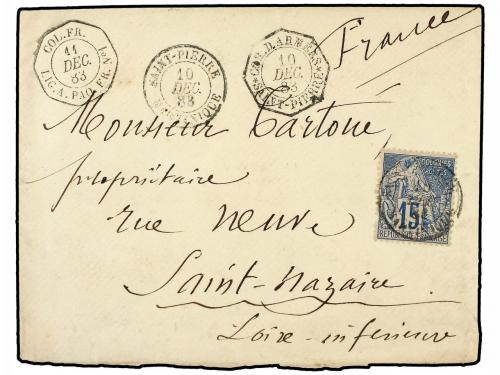 COL. FR. Nº1
11
DEC.
83
LIG. A. PAQ. FR.
SAINT-PIERRE
10
DEC.
83
MARTINIQUE
COR. D. ARMÉES
10
DEC.
83
SAINT-PIERRE
France
Monsieur Cartoué,
propriétaire
rue neuve
Saint-Nazaire
Loire-inférieure
COLONIES
POSTES
15
REPUBLIQUE FRANCAISE